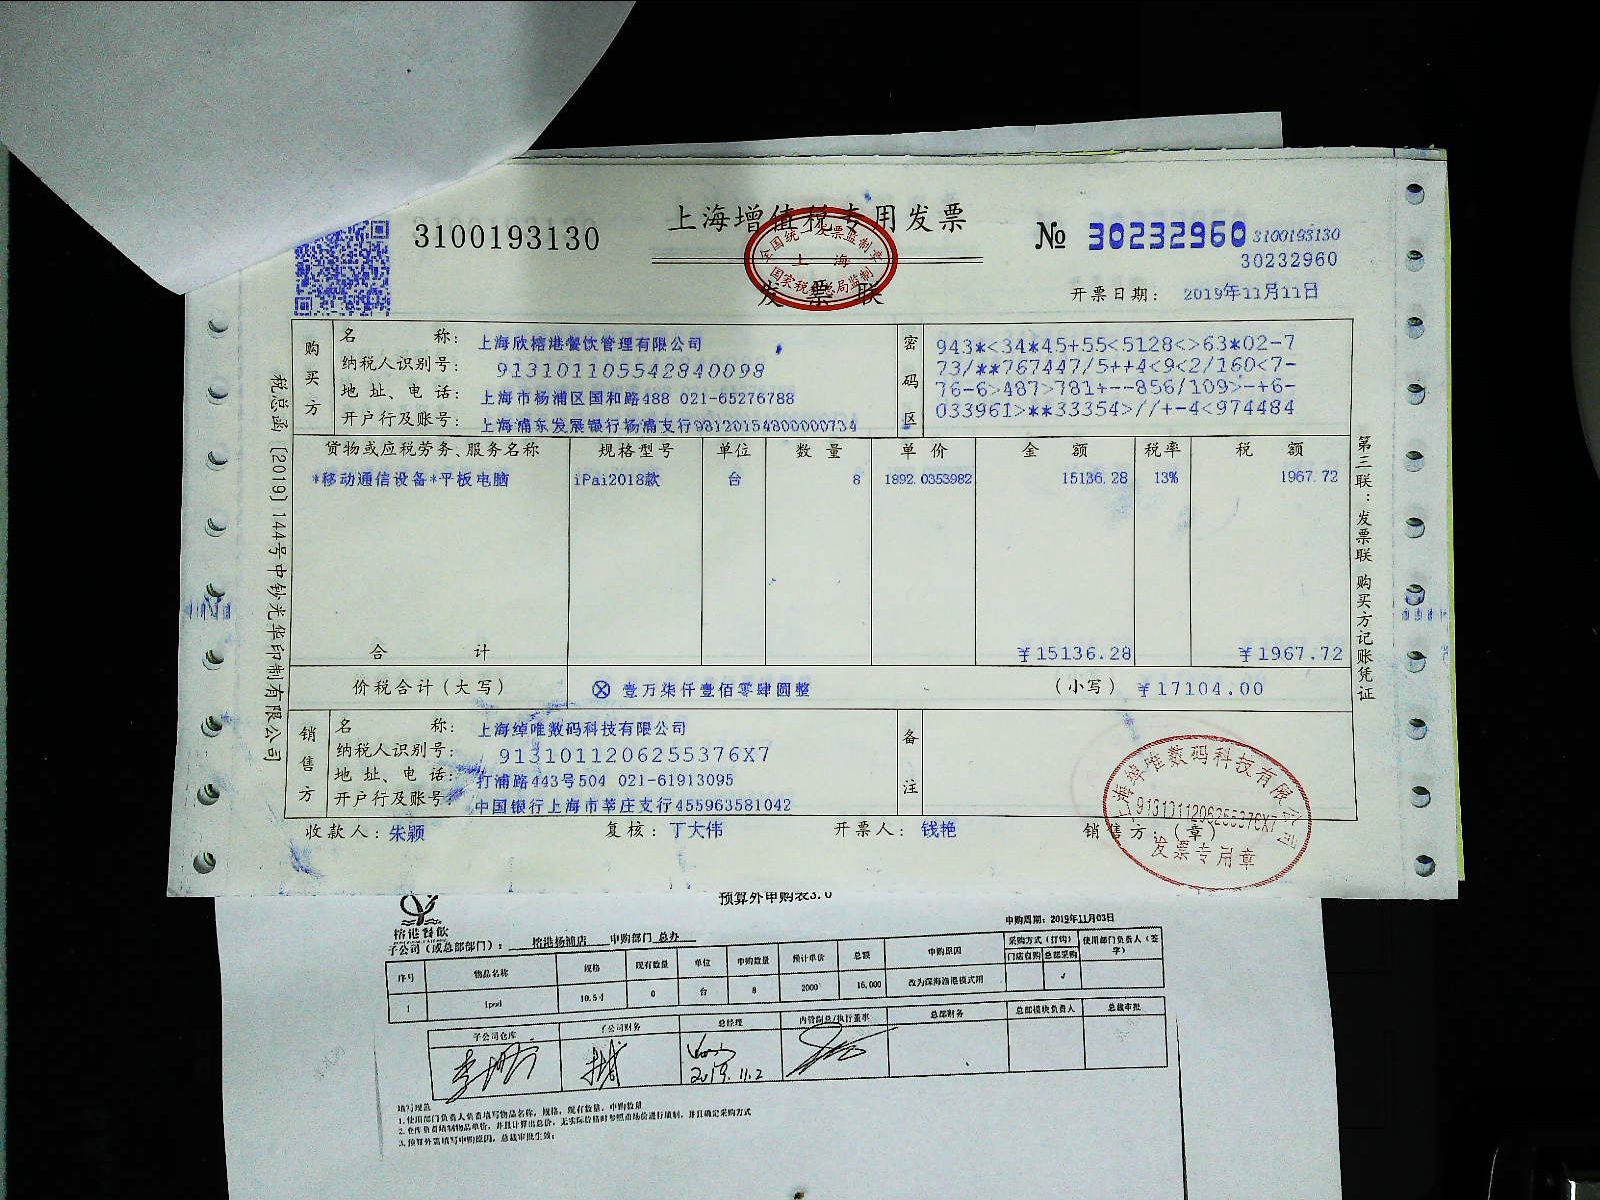 3100193130
上海增值税专用发票
全国统一发票监制章
上海
国家税务总局监制
发票联
№ 30232960
3100193130
30232960
开票日期: 2019年11月11日
购买方
名称: 上海欣榕港餐饮管理有限公司
纳税人识别号: 913101105542840098
地址、电话: 上海市杨浦区国和路488 021-65276788
开户行及账号: 上海浦东发展银行杨浦支行98120154800000734
密码区
943*<34*45+55<5128<>63*02-7
73/**767447/5++4<9<2/160<7-
76-6>487>781+--856/109>-+6-
033961>**33354>//+-4<974484
货物或应税劳务、服务名称 规格型号 单位 数量 单价 金额 税率 税额
*移动通信设备*平板电脑 iPai2018款 台 8 1892.0353982 15136.28 13% 1967.72
合计 ¥15136.28 ¥1967.72
价税合计(大写) ⊗ 壹万柒仟壹佰零肆圆整 (小写) ¥17104.00
销售方
名称: 上海绰唯数码科技有限公司
纳税人识别号: 9131011206255376X7
地址、电话: 打浦路443号504 021-61913095
开户行及账号: 中国银行上海市莘庄支行455963581042
备注
收款人: 朱颖 复核: 丁大伟 开票人: 钱艳 销售方: (章)
上海绰唯数码科技有限公司
9131011206255376X7
发票专用章
税总函[2019]144号中钞光华印制有限公司
第三联:发票联 购买方记账凭证
预算外申购表3.0
榕港餐飲
申购周期: 2019年11月03日
子公司(或总部部门): 榕港杨浦店 申购部门 总办
序号 物品名称 规格 现有数量 单位 申购数量 预计单价 总额 申购原因 采购方式(打钩) 使用部门负责人(签字)
门店自购 总部采购
1 Ipad 10.5寸 0 台 8 2000 16,000 改为深海渔港模式用 √
子公司仓库 子公司财务 总经理 内管副总/执行董事 总部财务 总部模块负责人 总裁审批
2019.11.2
填写规范
1.使用部门负责人负责填写物品名称, 规格, 现有数量, 申购数量
2.仓库负责填制物品单价, 并且计算出总价, 无实际价格时参照市场价进行填制, 并且确定采购方式
3.预算外需填写申购原因, 总裁审批生效;